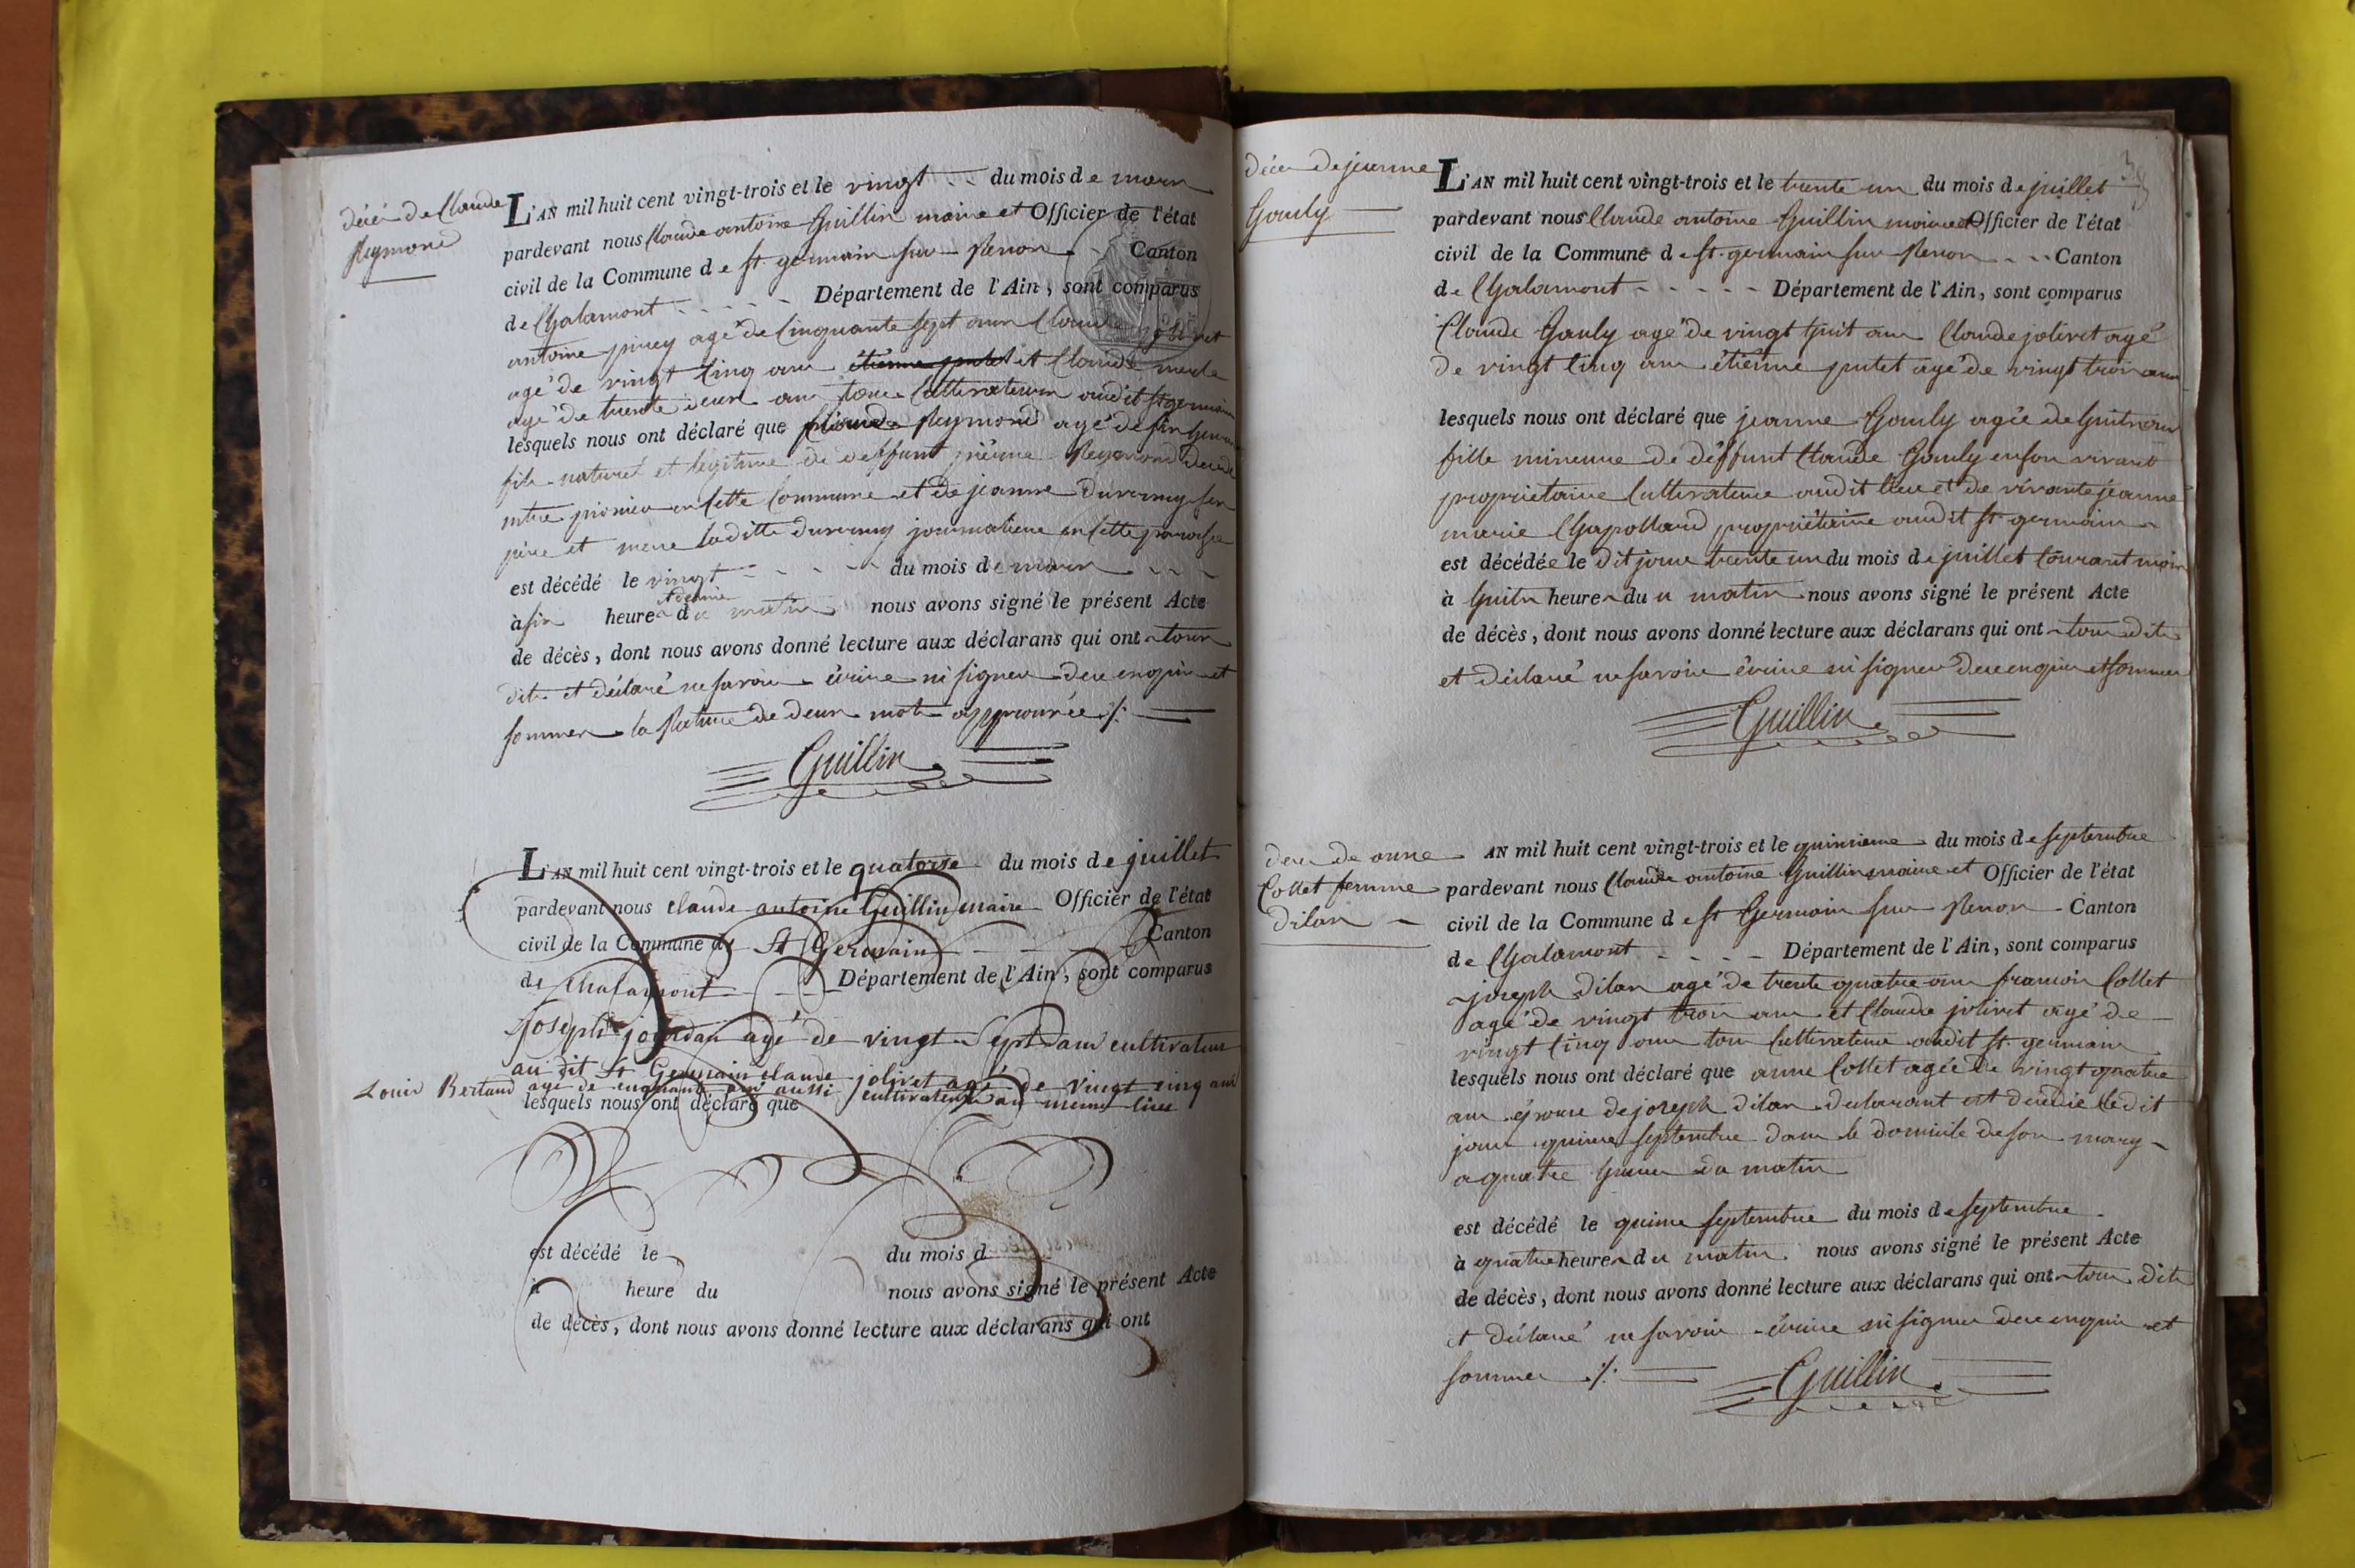 décès de Claude
Reymond
L'AN mil huit cent vingt-trois et le vingt - - du mois de mars
pardevant nous Claude antoine Guillin maire et Officier de l'état
civil de la Commune de St. germain sur Renon - Canton
de Chalamont - - - - Département de l'Ain, sont comparus
antoine agé de cinquante sept ans Claude jolivet
agé de vingt cinq ans étienne putet et Claude merle
agé de trente deux ans tous cultivateurs audit st germain
lesquels nous ont déclaré que Claude Reymond agé de six heures
fils naturel et légitime de deffunt Reymond décédé
en cette commune et de jeanne ses
père et mère laditte journalière en cette paroisse
est décédé le vingt - - - - du mois de mars - - -
à six heures et demie du matin nous avons signé le présent Acte
de décès, dont nous avons donné lecture aux déclarans qui ont tous
dits et déclaré ne savoir écrire ni signer de ce enquis et
sommes la rature de deux mots approuvée ./.
Guillin
L'AN mil huit cent vingt-trois et le quatorze du mois de juillet
pardevant nous claude antoine Guillin maire Officier de l'état
civil de la Commune de St Germain - - - Canton
de Chalamont - - - Département de l'Ain, sont comparus
Joseph jourdan agé de vingt Sept ans cultivateur
au dit St Germain claude jolivet agé de vingt cinq ans
Louis Bertaud agé de cinquante ans aussi cultivateurs au meme lieu
lesquels nous ont déclaré que
est décédé le du mois d
à heure du nous avons signé le présent Acte
de décès, dont nous avons donné lecture aux déclarans qui ont
décès de jeanne
Gauly
L'AN mil huit cent vingt-trois et le trente un du mois de juillet
pardevant nous Claude antoine Guillin maire et Officier de l'état
civil de la Commune de st. germain sur Renon - - - Canton
de Chalamont - - - - - Département de l'Ain, sont comparus
Claude Gauly agé de vingt huit ans Claude jolivet agé
de vingt cinq ans étienne putet agé de vingt trois ans
lesquels nous ont déclaré que jeanne Gauly agée de huit ans
fille mineure de déffunt Claude Gauly en son vivant
propriétaire cultivateur audit lieu et de vivante jeanne
marie Chapolland propriétaire audit st. germain
est décédée le dit jour trente un du mois de juillet courant mois
à huits heures du matin nous avons signé le présent Acte
de décès, dont nous avons donné lecture aux déclarans qui ont tous dits
et déclaré ne savoir écrire ni signer de ce enquis et sommes
Guillin
deces de anne
Collet femme
Dilan
AN mil huit cent vingt-trois et le quinzieme du mois de septembre
pardevant nous Claude antoine Guillin maire et Officier de l'état
civil de la Commune de st Germain sur Renon - Canton
de Chalamont - - - - Département de l'Ain, sont comparus
joseph Dilan agé de trente quatre ans francois Collet
agé de vingt trois ans et Claude jolivet agé de
vingt cinq ans tous cultivateurs audit st. germain
lesquels nous ont déclaré que anne Collet agée de vingt quatre
ans épouse de joseph dilan declarant est décédée le dit
jour quinze septembre dans le domicile de son mary
a quatre heures du matin
est décédé le quinze septembre du mois de septembre
à quatre heures du matin nous avons signé le présent Acte
de décès, dont nous avons donné lecture aux déclarans qui ont tous dits
et déclaré ne savoir écrire ni signer de ce enquis et
sommes ./.
Guillin